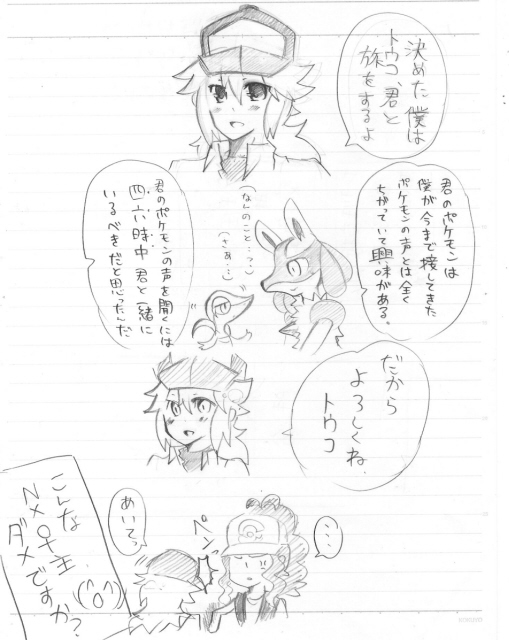 決めた僕は
トウコ、君と
旅をするよ
君のポケモンは
僕が今まで接してきた
ポケモンの声とは全く
ちがっていて興味がある。
(なんのこと…?)
(さぁ…)
君のポケモンの声を聞くには
四六時中君と一緒に
いるべきだと思ったんだ
だから
よろしくね、
トウコ
…
ペンっ
あいてっ
こんな
N×♀主
ダメですか?
(^o^)